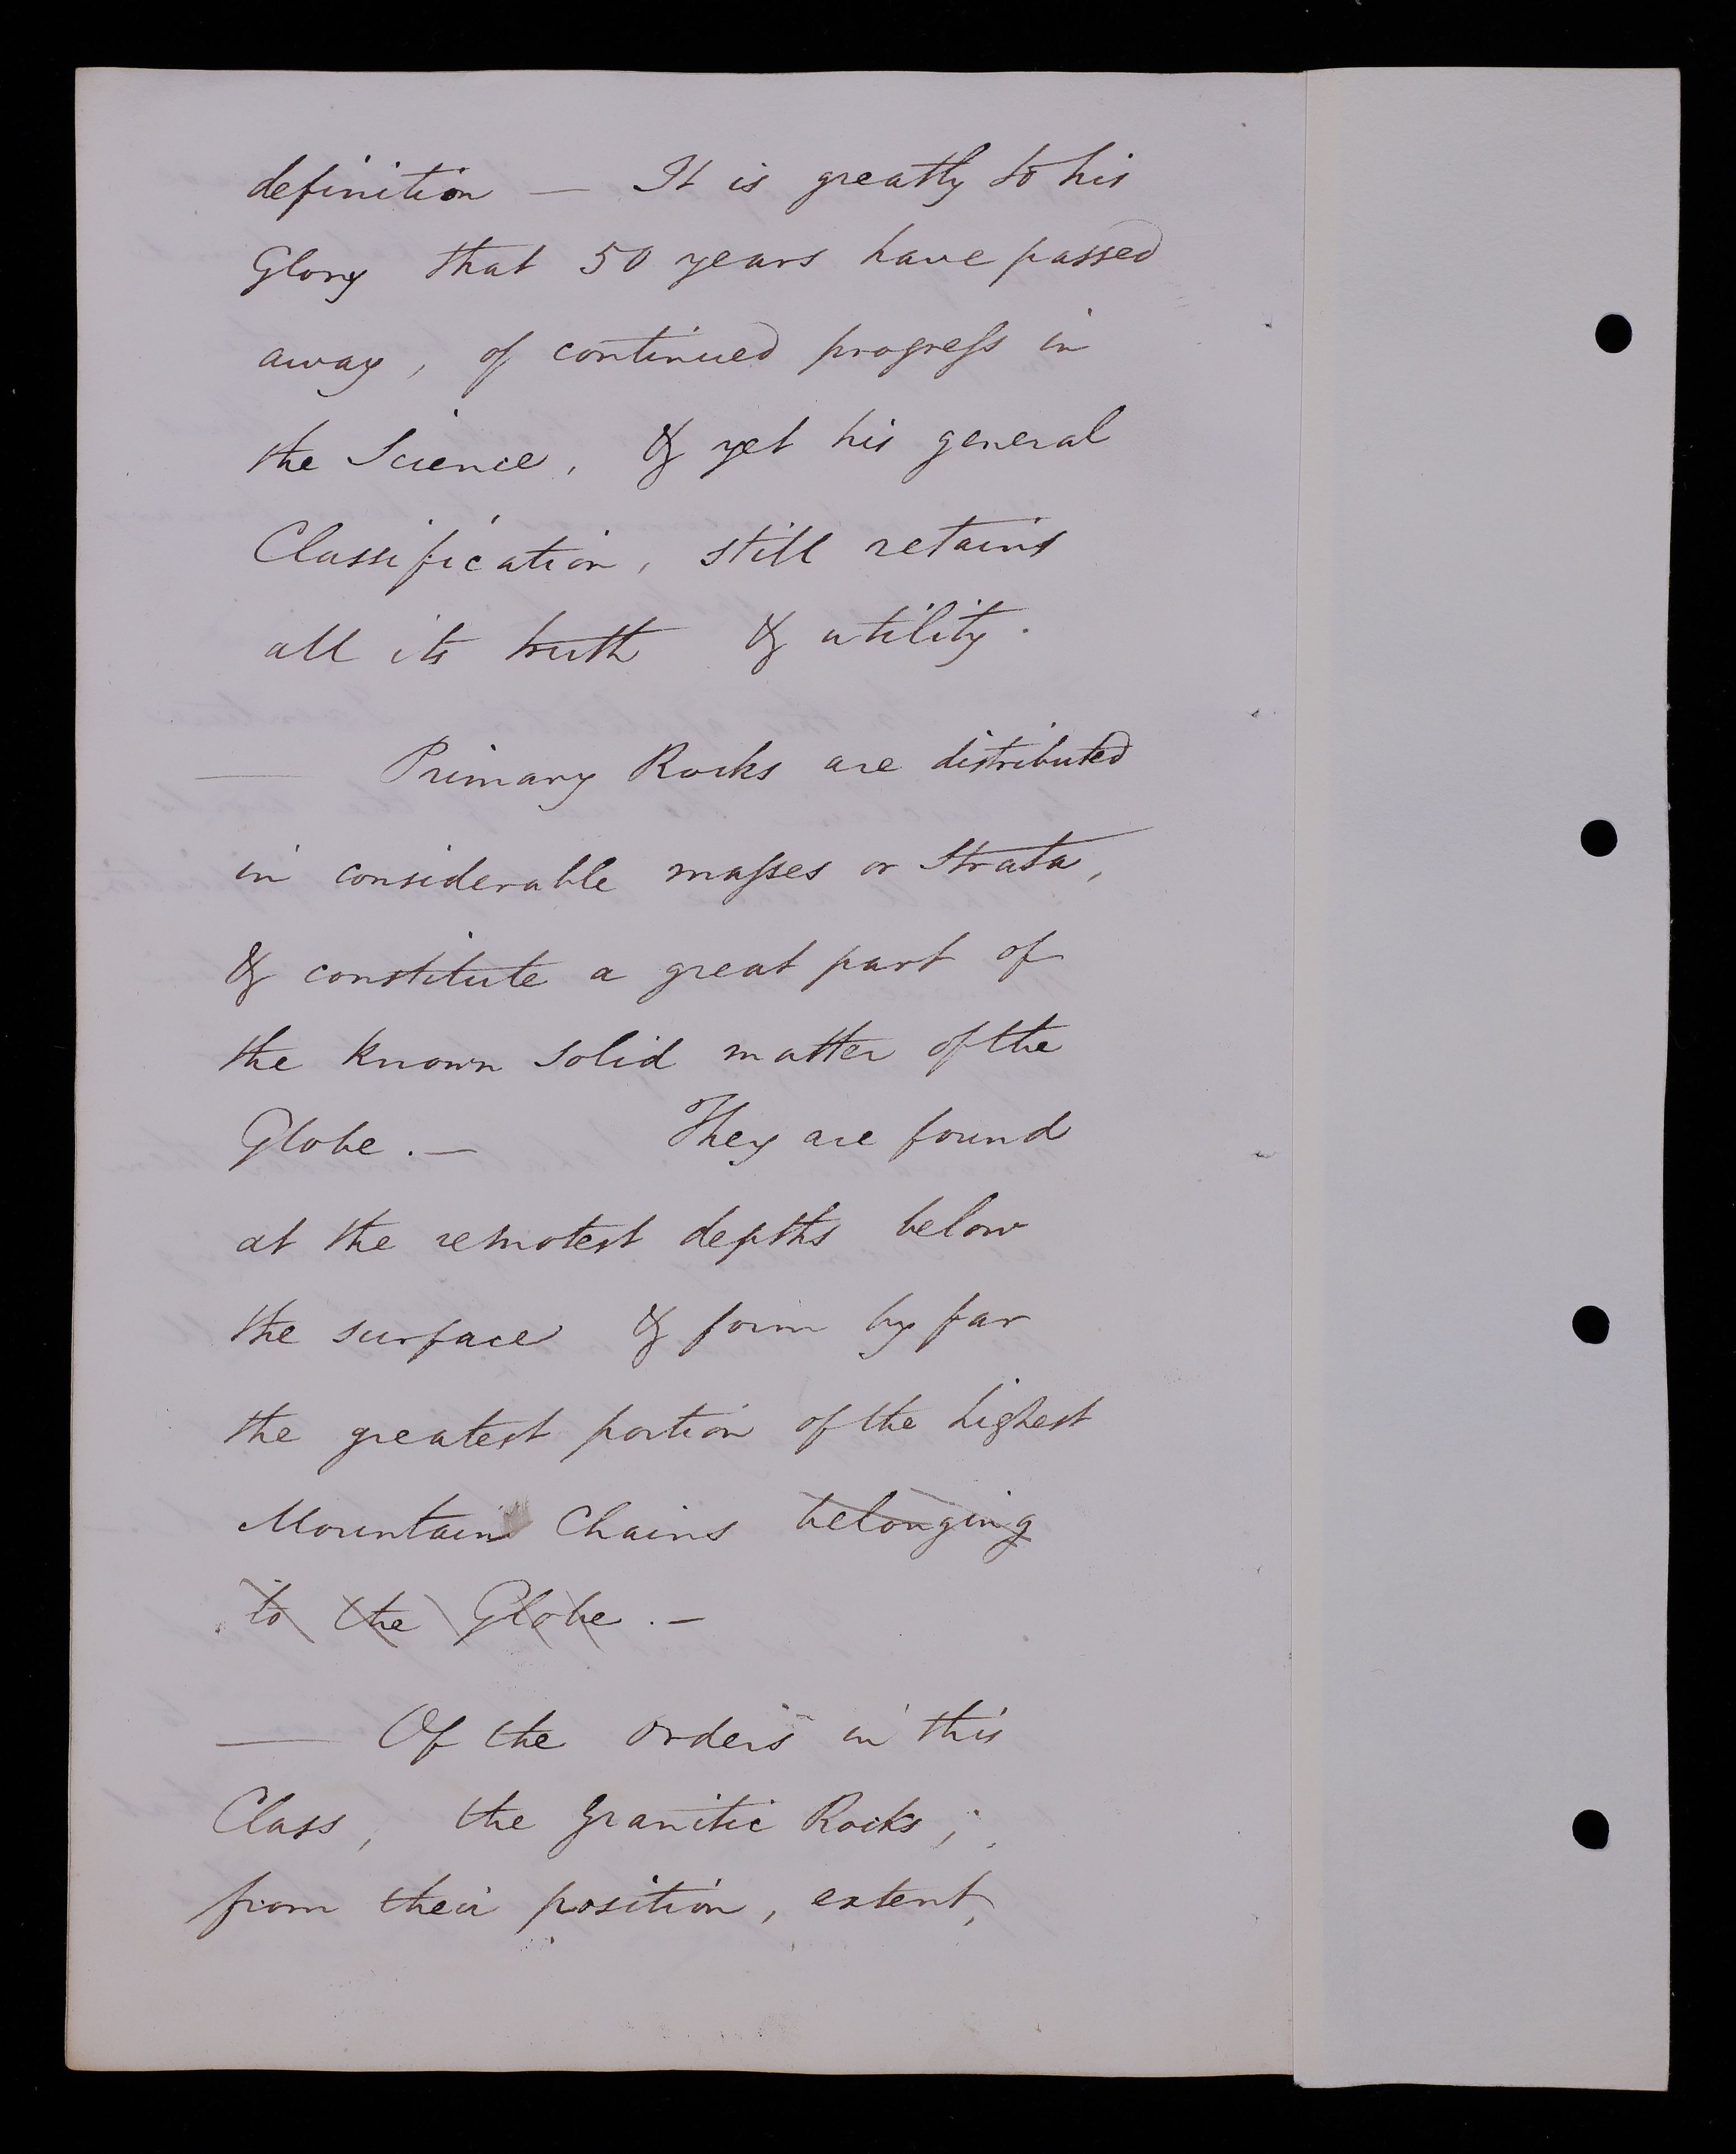 definition — It is greatly to his
Glory that 50 years have passed
away, of continued progress in
the Science, & yet his general
Classification, still retains
all its truth & utility.
— Primary Rocks are distributed
in considerable masses or Strata,
& constitute a great part of
the known solid matter of the
Globe. — They are found
at the remotest depths below
the surface & form by far
the greatest portion of the highest
Mountain Chains belonging
to the Globe. —
— Of the orders in this
Class, the Granitic Rocks;
from their position, extent,